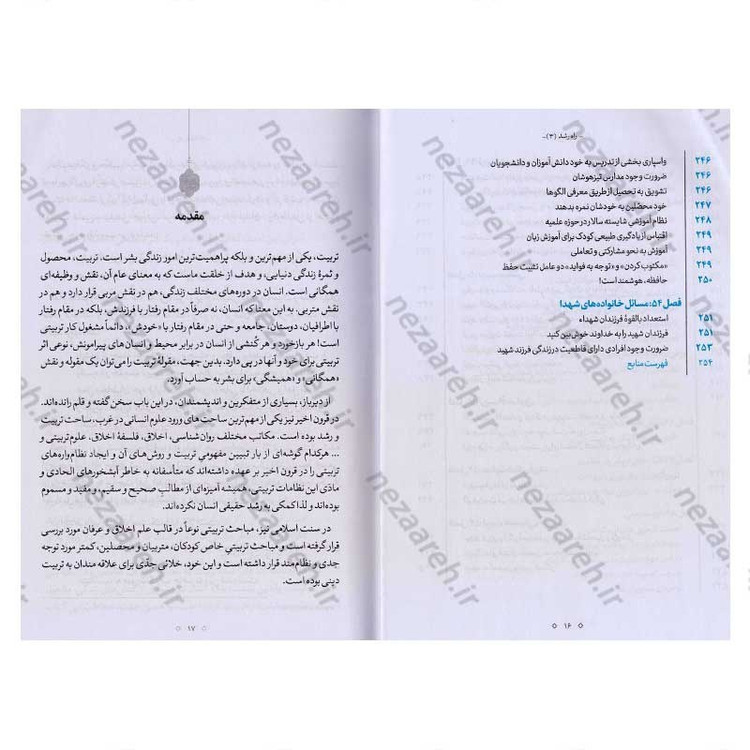 - راه رشد (۳) -
واسپاری بخشی از تدریس به خود دانش آموزان و دانشجویان ۲۴۶
ضرورت وجود مدارس تیزهوشان ۲۴۶
تشویق به تحصیل از طریق معرفی الگوها ۲۴۶
خود محصّلین به خودشان نمره بدهند ۲۴۷
نظام آموزشی شایسته سالار در حوزه علمیه ۲۴۸
اقتباس از یادگیری طبیعی کودک برای آموزش زبان ۲۴۹
آموزش به نحو مشارکتی و تعاملی ۲۴۹
«مکتوب کردن» و «توجه به فواید» دو عامل تثبیت حفظ ۲۴۹
حافظه، هوشمند است! ۲۵۰
فصل ۵۴: مسائل خانواده‌های شهدا
استعداد بالقوۀ فرزندان شهداء ۲۵۱
فرزندان شهید را به خداوند خوش‌بین کنید ۲۵۱
ضرورت وجود افرادی دارای قاطعیت در زندگی فرزند شهید ۲۵۳
فهرست منابع ۲۵۴
۱۶
مقدمه
تربیت، یکی از مهم‌ترین و بلکه پراهمیت‌ترین امور زندگی بشر است. تربیت، محصول
و ثمرۀ زندگی دنیایی، و هدف از خلقت ماست که به معنای عام آن، نقش و وظیفه‌ای
همگانی است. انسان در دوره‌های مختلف زندگی، هم در نقش مربی قرار دارد و هم در
نقش متربی. به این معنا که انسان، نه صرفاً در مقام رفتار با فرزندش، بلکه در مقام رفتار
با اطرافیان، دوستان، جامعه و حتی در مقام رفتار با «خودش»، دائماً مشغول کار تربیتی
است! هر بازخورد و هر کُنشی از انسان در برابر محیط و انسان های پیرامونش، نوعی اثر
تربیتی برای خود و آنها در پی دارد. بدین جهت، مقولۀ تربیت را می‌توان یک مقوله و نقش
«همگانی» و «همیشگی» برای بشر به حساب آورد.
از دیرباز، بسیاری از متفکرین و اندیشمندان، در این باب سخن گفته و قلم رانده‌اند.
در قرون اخیر نیز یکی از مهم‌ترین ساحت‌های ورود علوم انسانی در غرب، ساحت تربیت
و رشد بوده است. مکاتب مختلف روان شناسی، اخلاق، فلسفۀ اخلاق، علوم تربیتی و
... هرکدام گوشه‌ای از بار تبیین مفهومی تربیت و روش‌های آن و ایجاد نظام‌واره‌های
تربیتی را در قرون اخیر بر عهده داشته‌اند که متأسفانه به خاطر آبشخورهای الحادی و
مادّی این نظامات تربیتی، همیشه آمیزه‌ای از مطالب صحیح و سقیم، و مفید و مسموم
بوده‌اند و لذا کمکی به رشد حقیقی انسان نکرده‌اند.
در سنت اسلامی نیز، مباحث تربیتی نوعاً در قالب علم اخلاق و عرفان مورد بررسی
قرار گرفته است و مباحث تربیتیِ خاص کودکان، متربیان و محصلین، کمتر مورد توجه
جدی و نظام‌مند قرار داشته است و این خود، خلائی جدّی برای علاقه مندان به تربیت
دینی بوده است.
۱۷
nezaareh.ir
nezaareh.ir
nezaareh.ir
nezaareh.ir
nezaareh.ir
nezaareh.ir